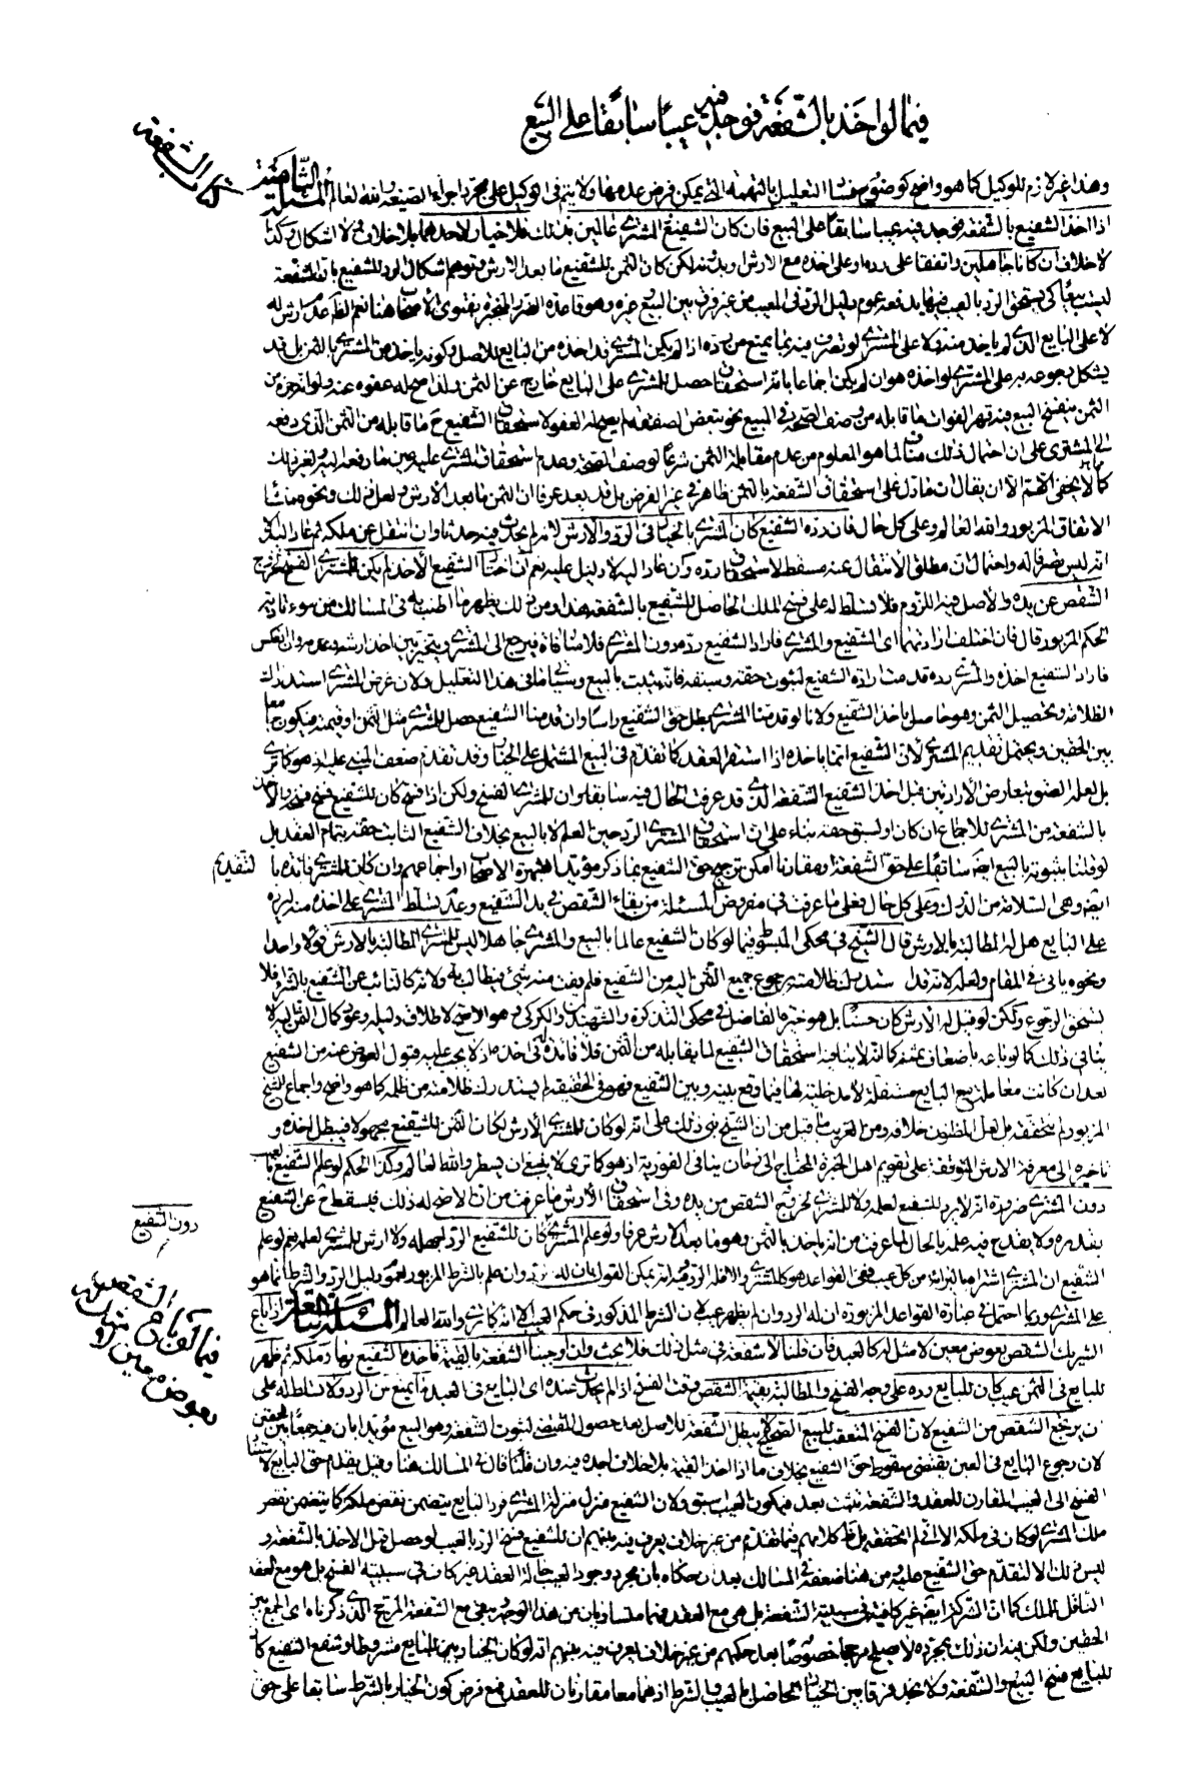 فيما لو اخذ بالشفعة فوجد فيه عيبا سابقا على البيع
كتاب الشفعة
وهذا غير لازم للوكيل كما هو واضح كوضوح التعليل بالتهمة التي يمكن فرض عدمها ولا يتم في الوكيل على مجرد اجراء الصيغة والله العالم المسئلة الثامنة
اذا اخذ الشفيع بالشفعة فوجد فيه عيبا سابقا على البيع فان كان الشفيع والمشتري عالمين بذلك فلا خيار لاحدهما بلا خلاف ولا اشكال وكذا
لا خلاف ان كانا جاهلين واتفقا على رده او على اخذه مع الارش وبدونه لكن كان الثمن للشفيع ما بعد الارش وتوهم اشكال الرد للشفيع بان الشفعة
ليست بيعا كي يستحق الرد بالعيب فيها يدفعه عموم دليل الرد في المعيب من غير فرق بين البيع وغيره وهو قاعدة الضرر المنجبرة بفتوى الاصحاب هنا نعم الظ عدم ارش له
لا على البايع الذي لم ياخذ منه ولا على المشتري لو تصرف فيه بما يمنع من رده اذا لم يكن المشتري قد اخذه من البايع للاصل وكونه ياخذ من المشتري بالثمن بل قد
يشكل رجوعه به على المشتري لو اخذه هو ان لم يكن اجماعا بانه استحقاق حصل للمشتري على البايع خارج عن الثمن ولذا صح له عفوه عنه ولو انه جزء من
الثمن ينفسخ البيع فيه قهرا لفوات ما قابله من وصف الصحة في المبيع نحو تبعض الصفقة لم يصح له العفو لاستحقاق الشفيع ح ما قابله من الثمن الذي دفعه
الى المشتري على ان احتمال ذلك مناف لما هو المعلوم من عدم مقابلة الثمن شرعا لوصف الصحة وعدم استحقاق المشتري عليه عين ما دفعه اليه ولغير ذلك
كما لا يخفى اللهم الا ان يقال ان ما دل على استحقاق الشفعة بالثمن ظاهر في غير الفرض بل قد يعد عرفا ان الثمن ما بعد الارش ولعل ذلك ونحوه منشأ
الاتفاق المزبور والله العالم وعلى كل حال فان رده الشفيع كان المشتري بالخيار في الرد والارش لانه لم يحدث فيه حدثا وان انتقل عن ملكه ثم عاد اليه
انه ليس تصرفا له واحتمال ان مطلق الانتقال عنه مسقط لاستحقاق رده وان عاد اليه لا دليل عليه نعم ان اختار الشفيع الاخذ لم يكن للمشتري الفسخ لخروج
الشقص عن يده والاصل فيه اللزوم فلا تسلط له على فسخ الملك الحاصل للشفيع بالشفعة هذا ومن ذلك يظهر ما اطنب به في المسالك من سوء تادية
الحكم المزبور قال فان اختلف ارادتهما اى الشفيع والمشتري فاراد الشفيع رده دون المشتري فلا منافاة فيرجع الى المشتري ويتخير بين اخذ ارشه وعدمه وان انعكس
فاراد الشفيع اخذه والمشتري رده قدمت ارادة الشفيع لثبوت حقه وسبقه فانه يثبت بالبيع وسيأتى ما في هذا التعليل ولان غرض المشتري استدراك
الظلامة وتحصيل الثمن وهو حاصل باخذ الشفيع ولانا لو قدمنا المشتري بطل حق الشفيع راسا وان قدمنا الشفيع حصل للمشتري مثل الثمن او قيمته فيكون جمعا
بين الحقين ويحتمل تقديم المشتري لان الشفيع انما ياخذه اذا استقر العقد كما تقدم في المبيع المشتمل على الخيار وقد تقدم ضعف المبنى عليه اذ هو كما ترى
بل لعله
بالشفعة من المشتري للاجماع ان كان او لسبق حقه بناء على ان استحقاق المشتري الرد حين العلم لا بالبيع بخلاف الشفيع الثابت حقه بتمام العقد بل
لو قلنا بثبوته بالبيع ايضا سابقا على حق الشفعة او مقارنا امكن ترجيح حق الشفيع بما ذكر مؤيدا بشهرة الاصحاب او اجماعهم وان كان للمشتري فائدة ما لتقديم
ايضا وهي السلامة من الدرك وعلى كل حال فعلى ما عرفت في مفروض المسئلة من بقاء الشقص في يد الشفيع وعدم تسلط المشتري على اخذه منه لرده
على البايع هل له المطالبة بالارش قال الشيخ في محكى المبسوط فيما لو كان الشفيع عالما بالبيع والمشتري جاهلا ليس للمشتري المطالبة بالارش قولا واحدا
ونحوه ياتي في المقام ولعله لانه قد استدرك ظلامته برجوع جميع الثمن اليه من الشفيع فلم يفت منه شيء يطالب به ولانه كالنائب عن الشفيع بالشراء فلا
يستحق الرجوع ولكن لو قيل له الارش كان حسنا بل هو خيرة الفاضل في محكى التذكرة والشهيدان والكركي بل هو الاصح لاطلاق دليله وعود كمال الثمن اليه لا
ينافى ذلك كما لو باعه باضعاف ثمنه كما انه لا ينافيه استحقاق الشفيع لما يقابله من الثمن فلا فائدة له في اخذه اذ لا يجب عليه قبول العوض عنه من الشفيع
بعد ان كانت معاملته مع البايع مستقلة لا مدخلية لها فيما وقع بينه وبين الشفيع فهو في الحقيقة لم يستدرك ظلامته من ظلمه كما هو واضح واجماع الشيخ
المزبور لم نتحققه بل لعل المظنون خلافه ومن الغريب ما قيل من ان الشيخ بنى ذلك على انه لو كان للمشتري الارش لكان الثمن للشفيع مجهولا فيبطل اخذه و
تاخيره الى معرفة الارش المتوقفة على تقويم اهل الخبرة المحتاج الى زمان ينافى الفورية اذ هو كما ترى لا ينبغي ان يسطر والله العالم وكذا الحكم لو علم الشفيع بالعيب
دون المشتري ضرورة انه لا يرد للشفيع لعلمه ولا للمشتري لخروج الشقص من يده وفي استحقاق الارش ما عرفت من ان الاصح له ذلك فيسقط ح عن الشفيع
بقدره ولا يقدح فيه علمه بالحال لما عرفت من انه ياخذ بالثمن وهو ما بعد الارش عرفا ولو علم المشتري كان للشفيع الرد لجهله ولا ارش للمشتري لعلمه نعم لو علم
دون الشفيع
الشفيع ان المشتري اشتراه بالبرائة من كل عيب ففي القواعد هو كالمشتري والا فله الرد
على المشتري وربما احتمل في عبارة القواعد المزبورة ان له الرد وان لم يظهر عيب لان الشرط المذكور في حكم العيب لكنه كما ترى والله العالم المسئلة التاسعة اذا باع
فيما لو باع الشقص بعوض معين لا مثل له
الشريك الشقص بعوض معين لا مثل له كالعبد فان قلنا لا شفعة في مثل ذلك فلا بحث وان اوجبنا الشفعة بالقيمة فاخذه الشفيع بها وملكه ثم ظهر
للبايع في الثمن عيب كان للبايع رده على وجه الفسخ والمطالبة بقيمة الشقص وقت الفسخ اذا لم يحدث عنده اى البايع في العبد ما يمنع من الرد ولا تسلط له على
ان يرتجع الشقص من الشفيع لان الفسخ المتعقب للبيع الصحيح لا يبطل الشفعة للاصل بعد حصول المقتضى لثبوت الشفعة وهو البيع مؤيدا بان فيه جمعا بين الحقين
لان رجوع البايع في العين يقتضي سقوط حق الشفيع بخلاف ما اذا اخذ القيمة بلا خلاف اجده فيه وان قلنا قال في المسالك هنا وقيل يقدم حق البايع لاستناد
الفسخ الى العيب المقارن للعقد والشفعة تثبت بعده فيكون العيب اسبق ولان الشفيع منزل منزلة المشتري فرد البايع يتضمن نقض ملكه كما يتضمن نقض
ملك المشتري لو كان في ملكه الا انا لم نتحققه بل ظ كلامهم فيما تقدم من غير خلاف يعرف فيه بينهم ان للشفيع فسخ الرد بالعيب لو حصل قبل الاخذ بالشفعة و
ليس ذلك الا لتقدم حق الشفيع عليه ومن هنا ضعفه في المسالك بعد ان حكاه بان مجرد وجود العيب حالة العقد غير كاف في سببية الفسخ بل هو مع العقد
الناقل للملك كما ان الشركة ايضا غير كافية في سببية الشفعة بل هي مع العقد فهما متساويان من هذا الوجه ويبقى مع الشفعة المرجح الذي ذكرناه اى الجمع بين
الحقين ولكن فيه ان ذلك بمجرده لا يصلح مرجحا خصوصا بعد حكمهم من غير خلاف يعرف فيه بينهم انه لو كان الخيار بينهما للبايع مشروطا وشفع الشفيع كان
للبايع فسخ البيع والشفعة ولا نجد فرقا بين الخيار الحاصل بالعيب والشرط اذ هما معا مقارنان للعقد فمع فرض كون الخيار بالشرط سابقا على حق